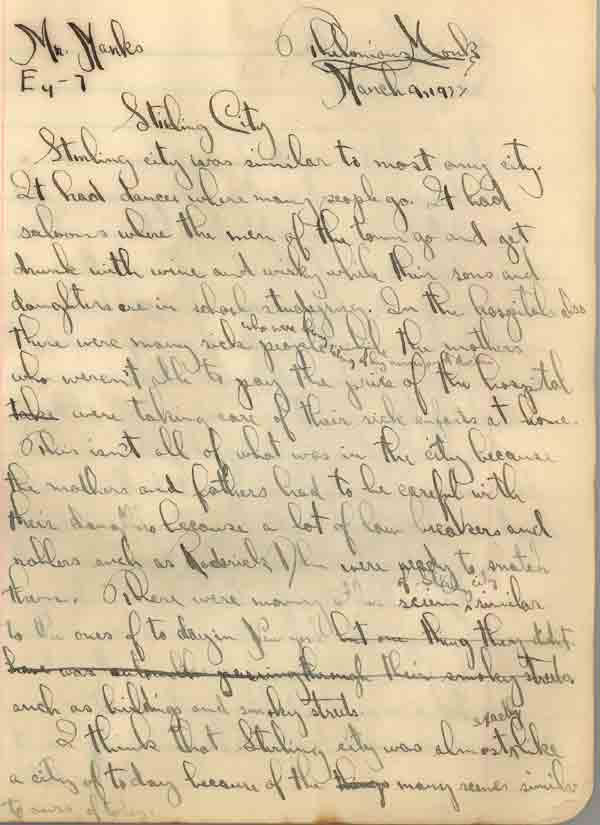 Mr. Manks Thelonious Monk
E4-7 March 9, 1933
Stirling City
Stirling city was similar to most any city.
It had dances where many people go. It had
saloons where the men of the town go and get
drunk with wine and wisky while their sons and
daughters are in school studying. In the hospitals also
there were many sick people who were being while the mothers
who weren't able to pay the price of the hospital
take were taking care of their sick infants at home.
This isn't all of what was in the city because
the mothers and fathers had to be careful with
their because a lot of law breakers and
robbers such as Roderick were ready to snatch
them. There were many sciens of Stirling city similar
to the ones of to day in but one thing they didnt
have was automobiles passing through their smoky streets
such as buildings and smoky streets.
I think that Stirling city was almost exactly like
a city of to day because of the things many scenes similar
to ours of today.